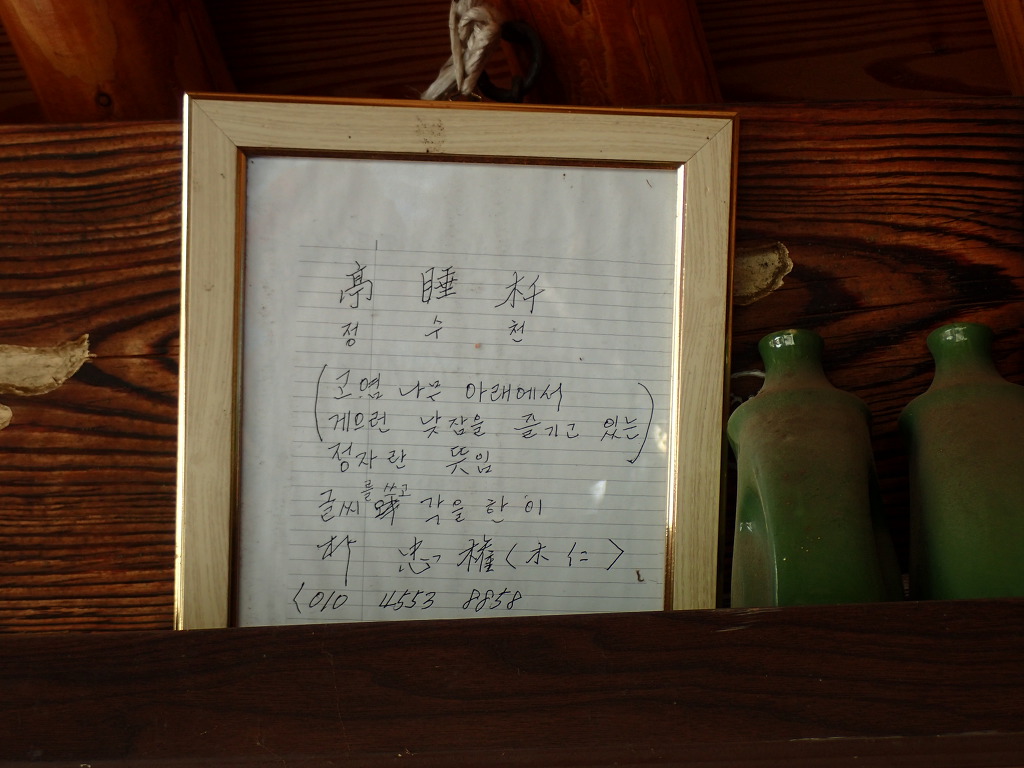 亭 睡 杄
정 수 천
(고염 나무 아래에서
게으런 낮잠을 즐기고 있는)
정자란 뜻임
글씨를 쓰고 각을 한 이
朴 忠 權 (木 仁)
(010 4553 8858